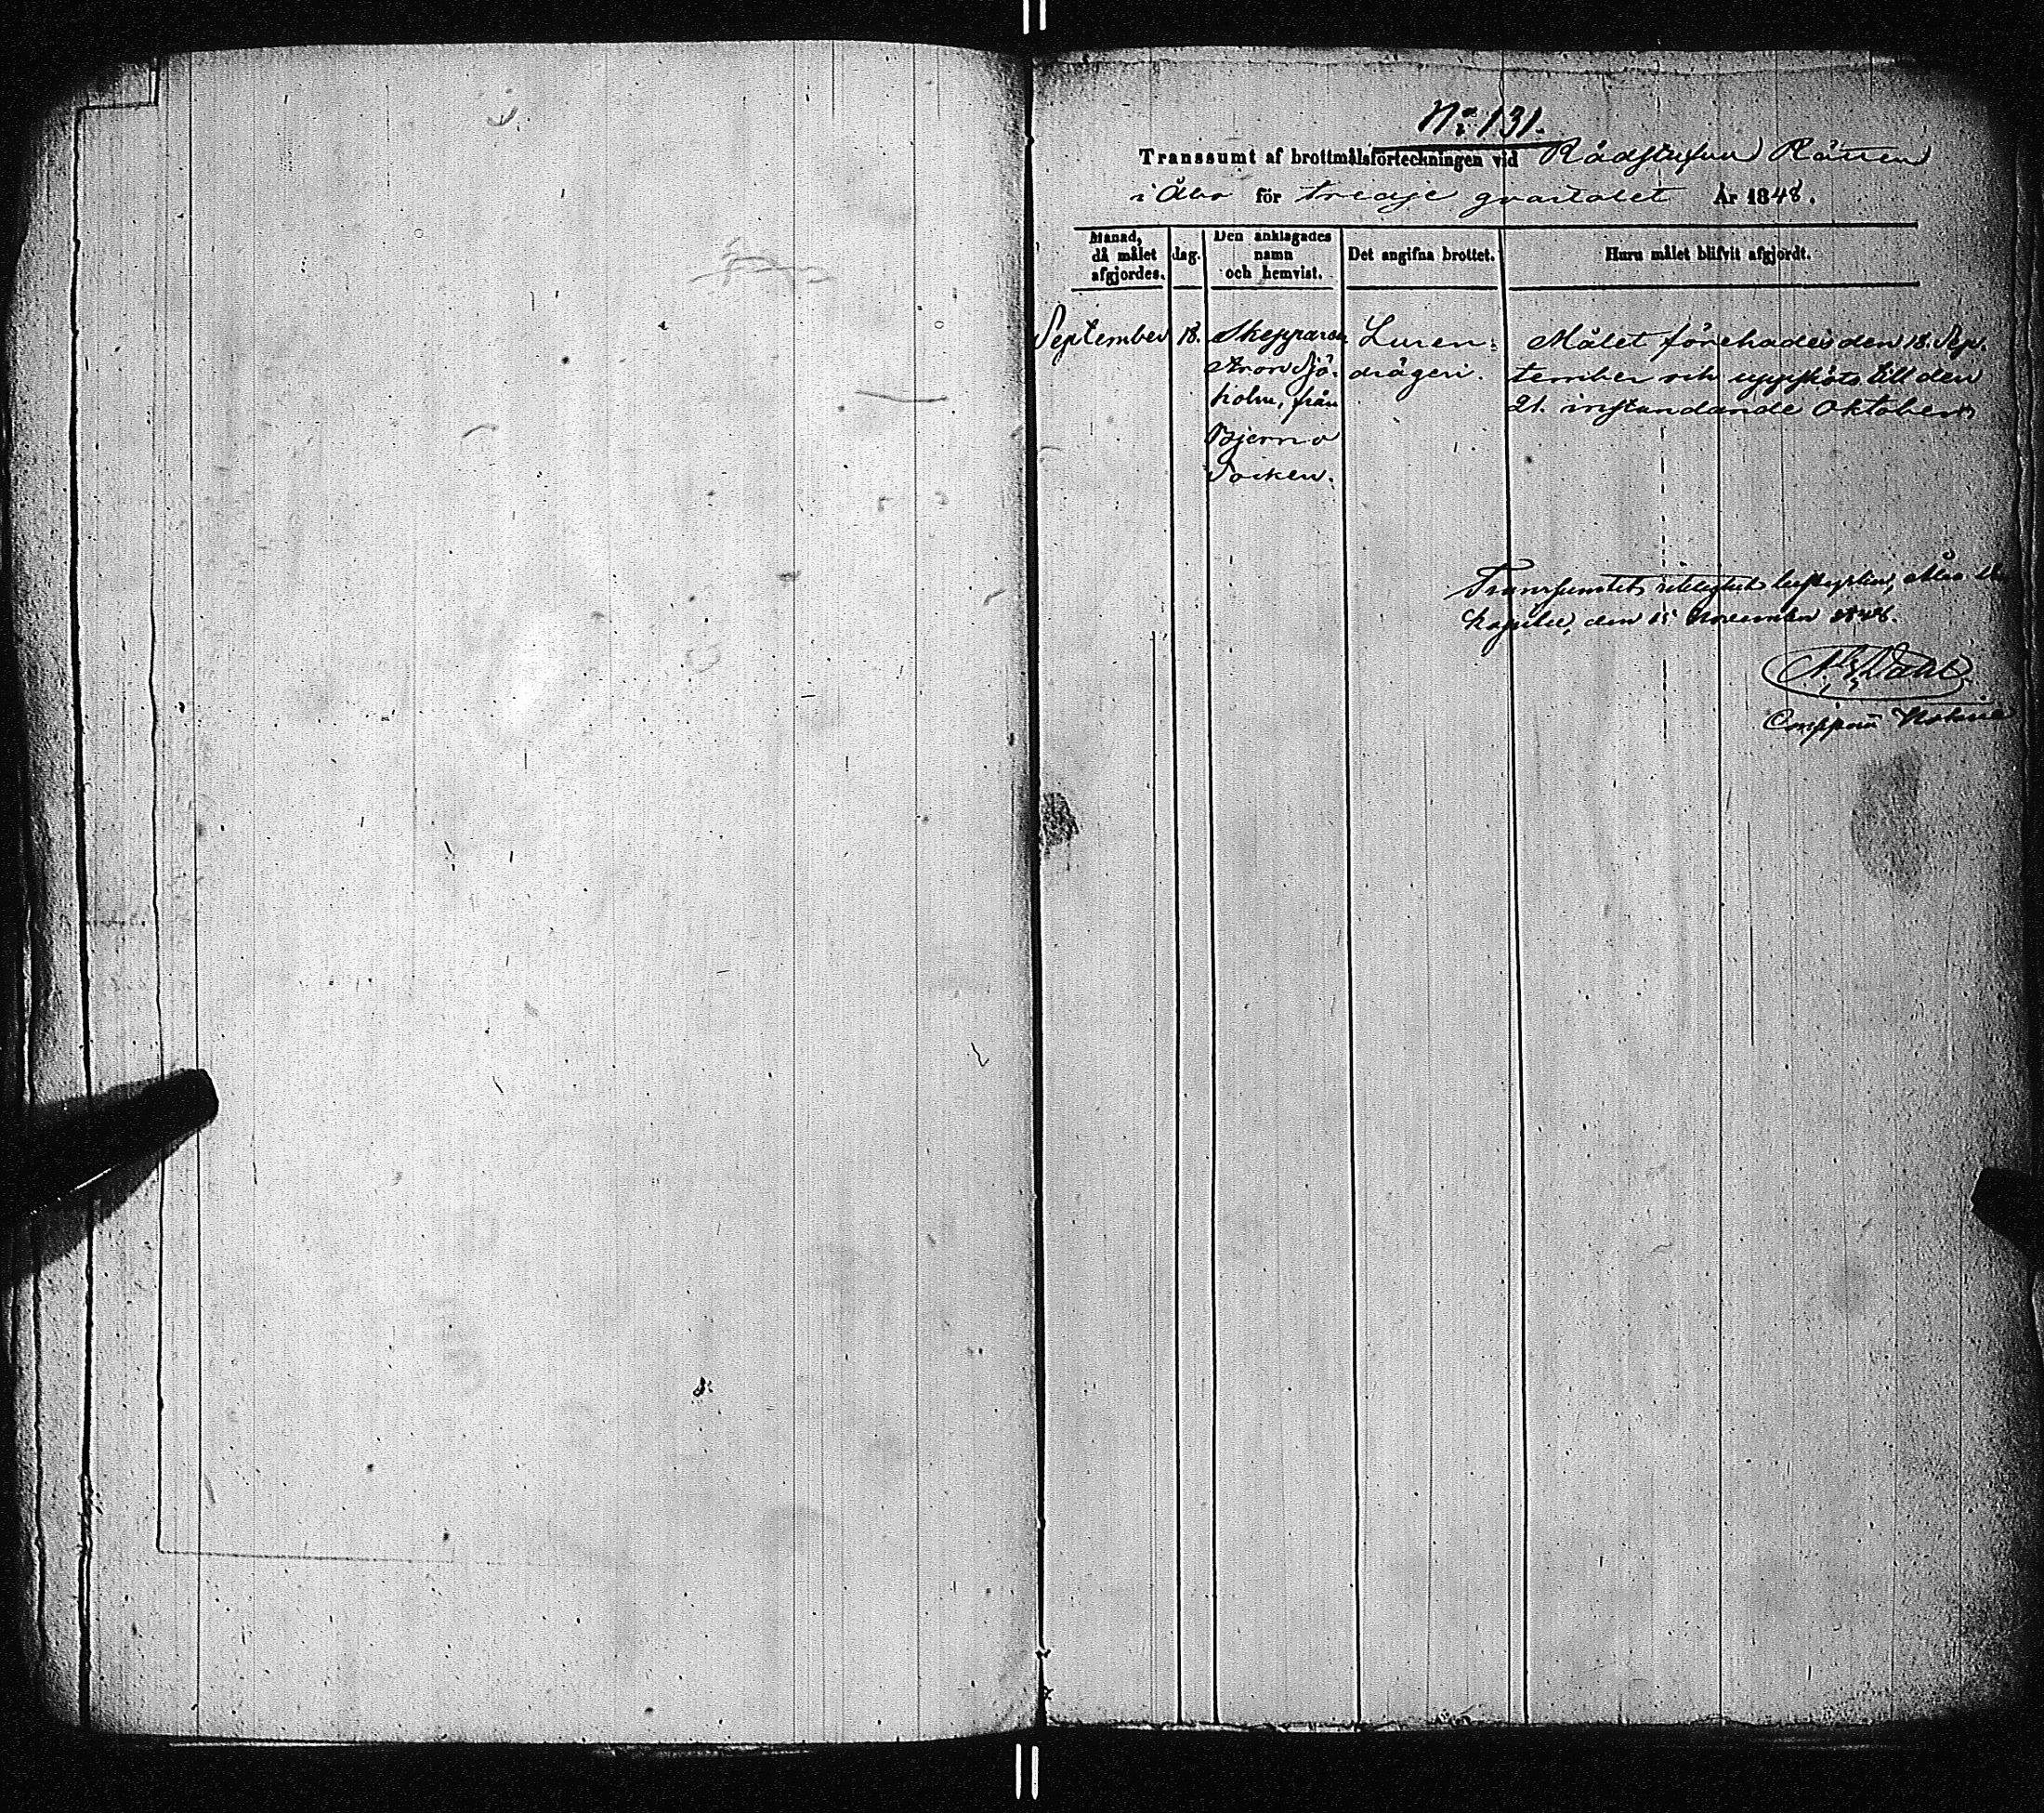 No 131.
Transsumt af brottmålsförteckningen vid Rådstufvu Rätten
i Åbo för tredje qvartalet År 1848.
Månad, då målet afgjordes.
dag.
Den anklagades namn och hemvist.
Det angifna brottet.
Huru målet blifvit afgjordt.
September 18. Skepparen Luren- Målet förehades den 18. Sep-
Aron Sjö- drägeri. tember och uppsköts till den
holm, från 21. instundande Oktober.
Bjerno
Socken.
Transsumtets riktighet bestyrker, Åbo
den 15 November 1848.
Dahl
Notarie